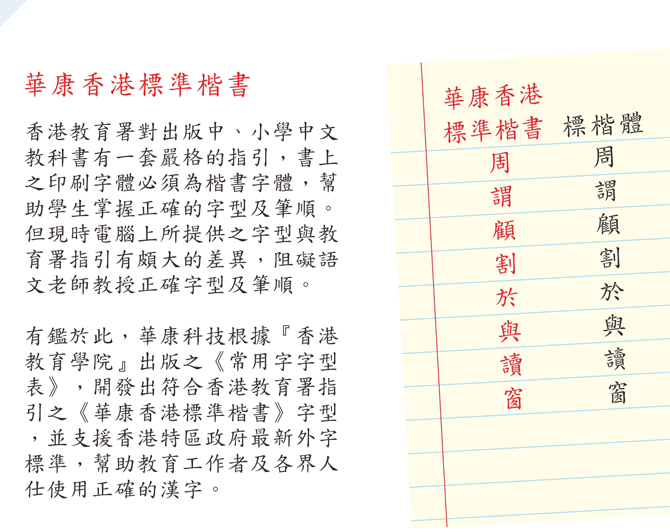 華康香港標準楷書
香港教育署對出版中、小學中文
教科書有一套嚴格的指引，書上
之印刷字體必須為楷書字體，幫
助學生掌握正確的字型及筆順。
但現時電腦上所提供之字型與教
育署指引有頗大的差異，阻礙語
文老師教授正確字型及筆順。
有鑑於此，華康科技根據『香港
教育學院』出版之《常用字字型
表》，開發出符合香港教育署指
引之《華康香港標準楷書》字型
，並支援香港特區政府最新外字
標準，幫助教育工作者及各界人
仕使用正確的漢字。
華康香港
標準楷書 標楷體
周 周
謂 謂
顧 顧
割 割
於 於
與 與
讀 讀
窗 窗